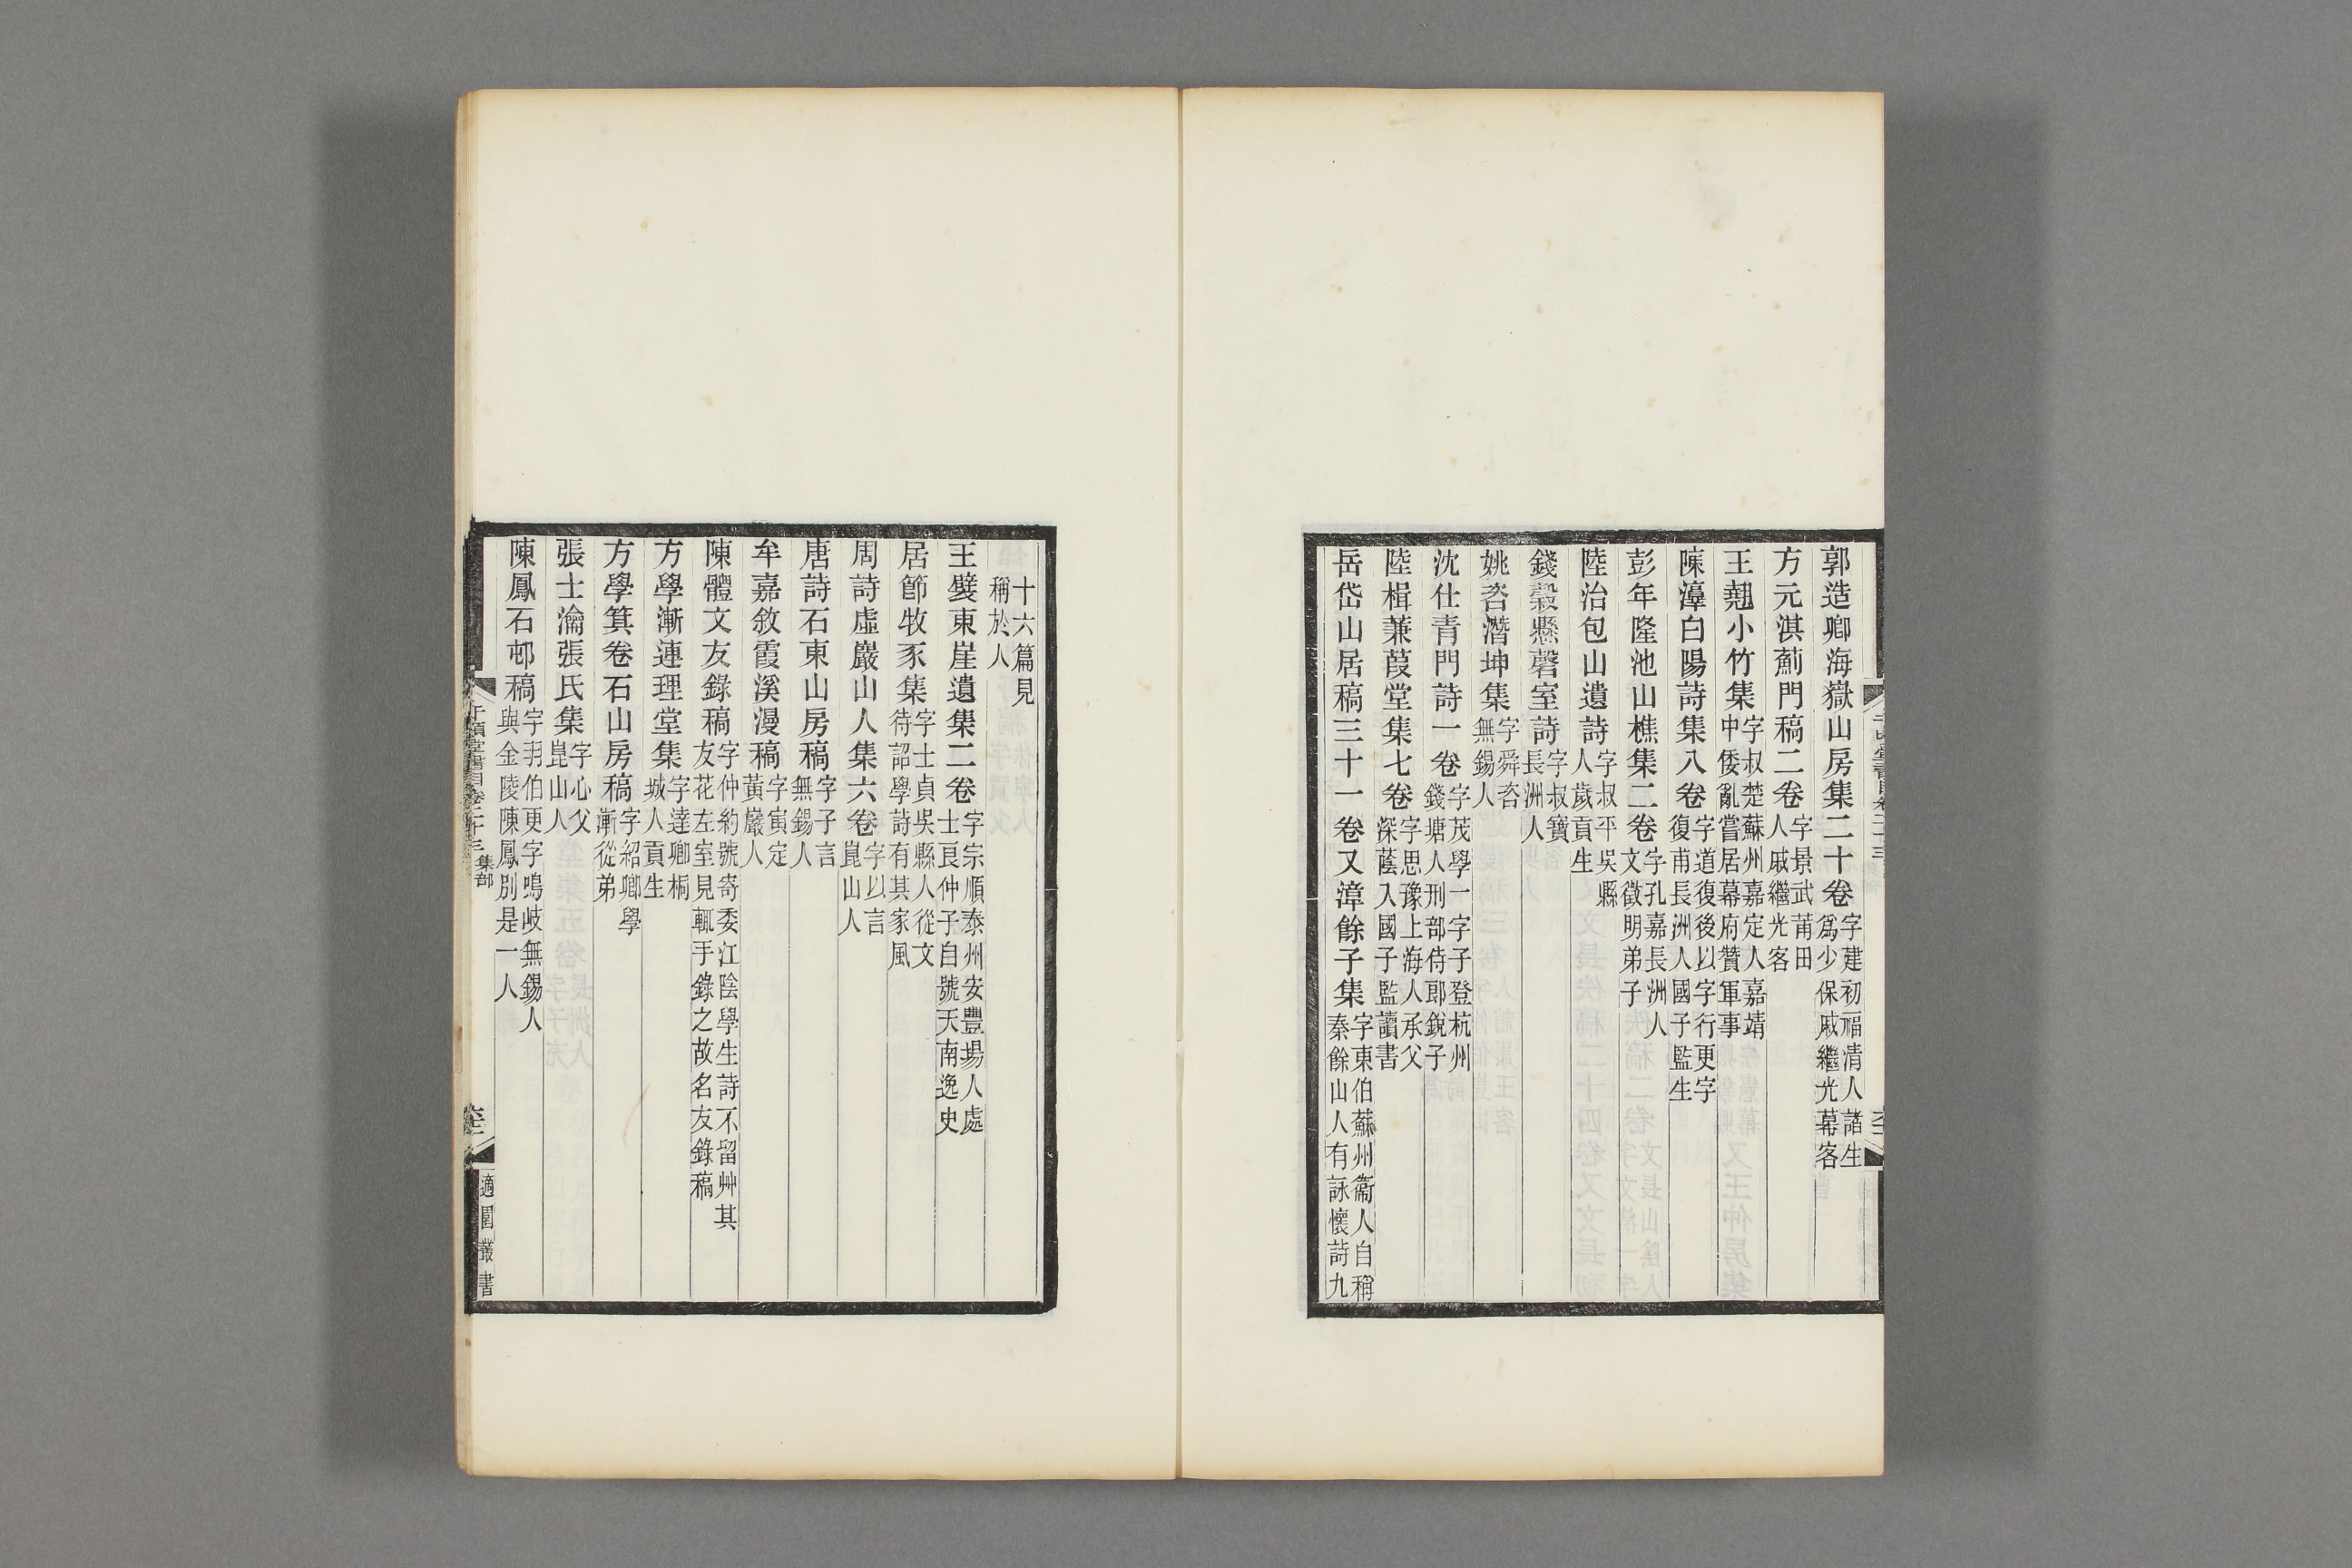 郭造卿海嶽山房集二十卷字建初福清人諸生爲少保戚繼光幕客
方元淇薊門稿二卷字景武莆田人戚繼光客
王翹小竹集字叔楚蘇州嘉定人嘉靖中倭亂嘗居幕府贊軍事
陳瀼白陽詩集八卷字道復後以字行更字復甫長洲人國子監生
彭年隆池山樵集二卷字孔嘉長洲人文徵明弟子
陸治包山遺詩字叔平吳縣人歲貢生
錢穀懸磬室詩字叔寶長洲人
姚咨潛坤集字舜咨無錫人
沈仕青門詩一卷字茂學一字子登杭州錢塘人刑部侍郎銳子
陸楫蒹葭堂集七卷字思豫上海人承父深蔭入國子監讀書
岳岱山居稿三十一卷又漳餘子集字東伯蘇州衞人自稱秦餘山人有詠懷詩九
十六篇見稱於人
王襞東崖遺集二卷字宗順泰州安豐場人處士艮仲子自號天南逸史
居節牧豕集字士貞吳縣人從文待詔學詩有其家風
周詩虛巖山人集六卷字以言崑山人
唐詩石東山房稿字子言無錫人
牟嘉敘霞溪漫稿字寅定黃巖人
陳體文友錄稿字仲約號寄委江陰學生詩不留艸其友花左室見輒手錄之故名友錄稿
方學漸連理堂集字達卿桐城人貢生
方學箕卷石山房稿字紹卿學漸從弟
張士瀹張氏集字心父崑山人
陳鳳石邨稿字羽伯更字鳴岐無錫人與金陵陳鳳別是一人
千頃堂書目卷二十三 集部
適園叢書